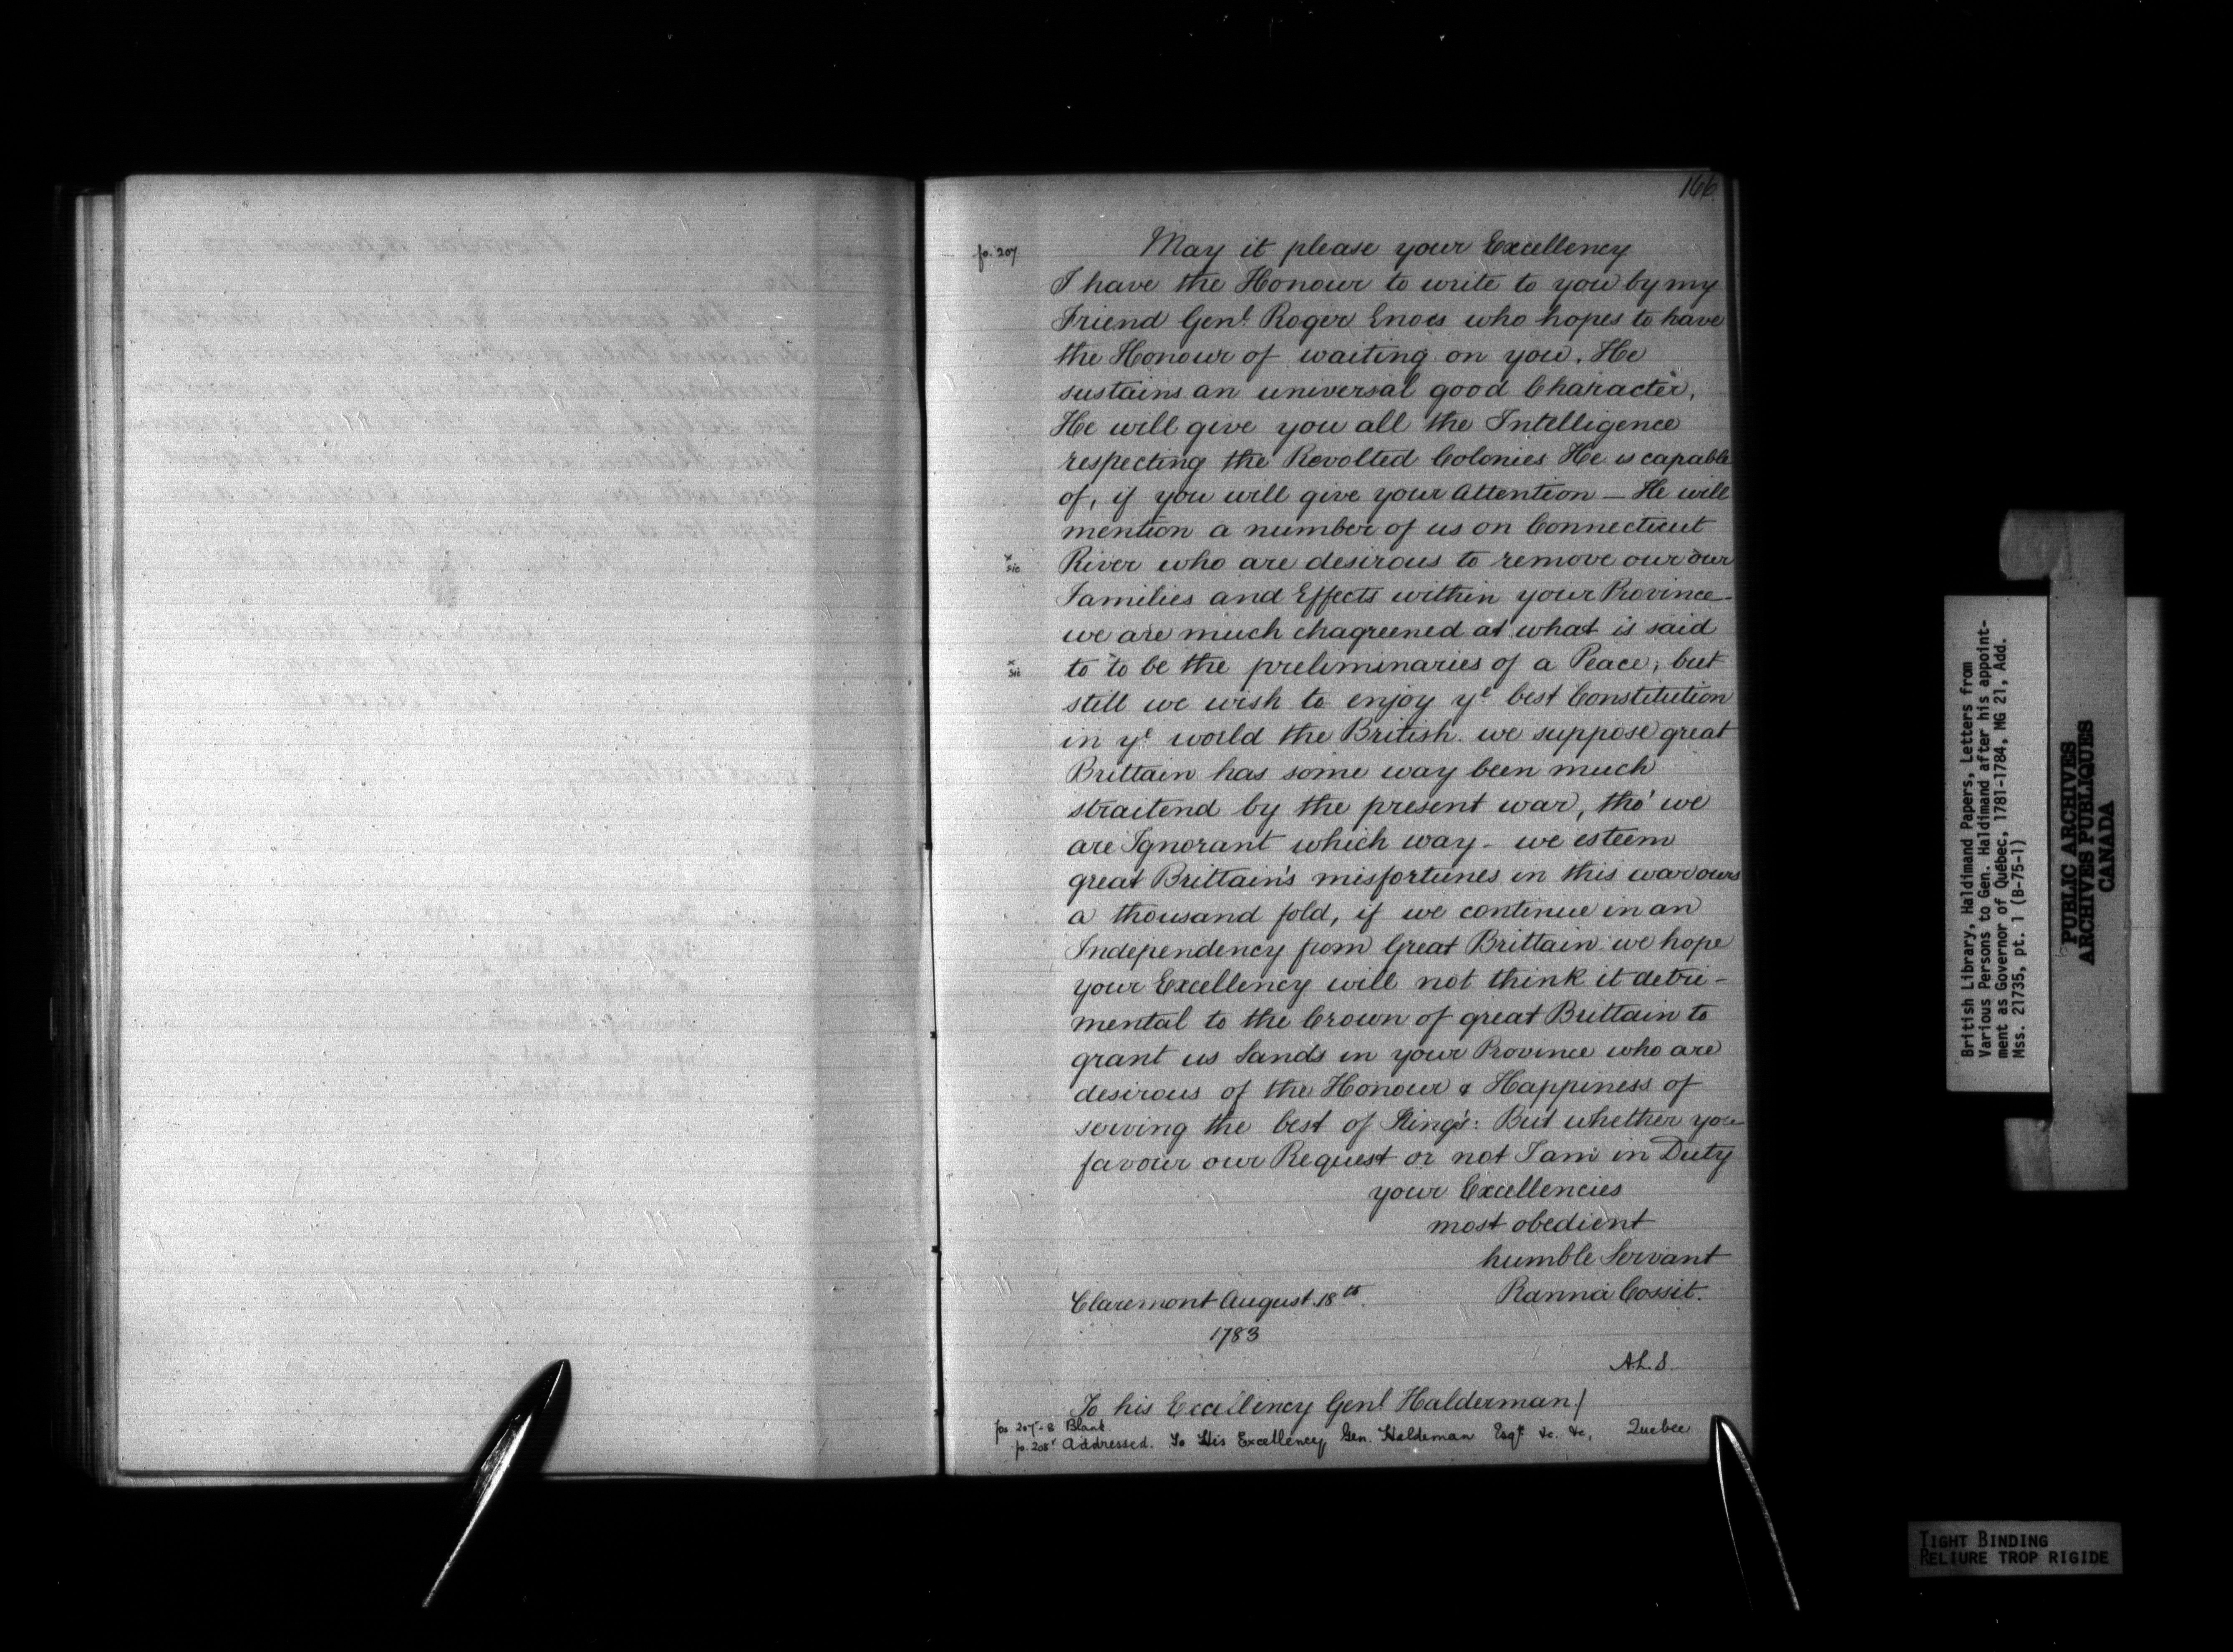 166
fo. 207
May it please your Excellency
I have the Honour to write to you by my
Friend Genl. Roger Enos who hopes to have
the Honour of waiting on you. He
sustains an universal good Character,
He will give you all the Intelligence
respecting the Revolted Colonies He is capable
of, if you will give your Attention — He will
mention a number of us on Connecticut
x sic River who are desirous to remove our our
Families and Effects within your Province -
we are much chagreened at what is said
x sic to to be the preliminaries of a Peace; but
still we wish to enjoy ye best Constitution
in ye world the British. we suppose great
Brittain has some way been much
straitend by the present war, tho' we
are Ignorant which way - we esteem
great Brittain's misfortunes in this war ours
a thousand fold, if we continue in an
Independency from Great Brittain: we hope
your Excellency will not think it detri-
mental to the Crown of great Brittain to
grant us Lands in your Province who are
desirous of the Honour & Happiness of
serving the best of King's: But whether you
favour our Request or not I am in Duty
your Excellencies
most obedient
humble Servant
Ranna Cossit.
Claremont August 18th.
1783
A.L.S.
To his Excellency Genl Halderman/
fos 207-8 Blank.
fo. 208 Addressed. To His Excellency Gen. Haldeman Esqr. &c. &c, Quebec
British Library, Haldimand Papers, Letters from
Various Persons to Gen. Haldimand after his appoint-
ment as Governor of Québec, 1781-1784, MG 21, Add.
Mss. 21735, pt. 1 (B-75-1)
PUBLIC ARCHIVES
ARCHIVES PUBLIQUES
CANADA
TIGHT BINDING
RELIURE TROP RIGIDE